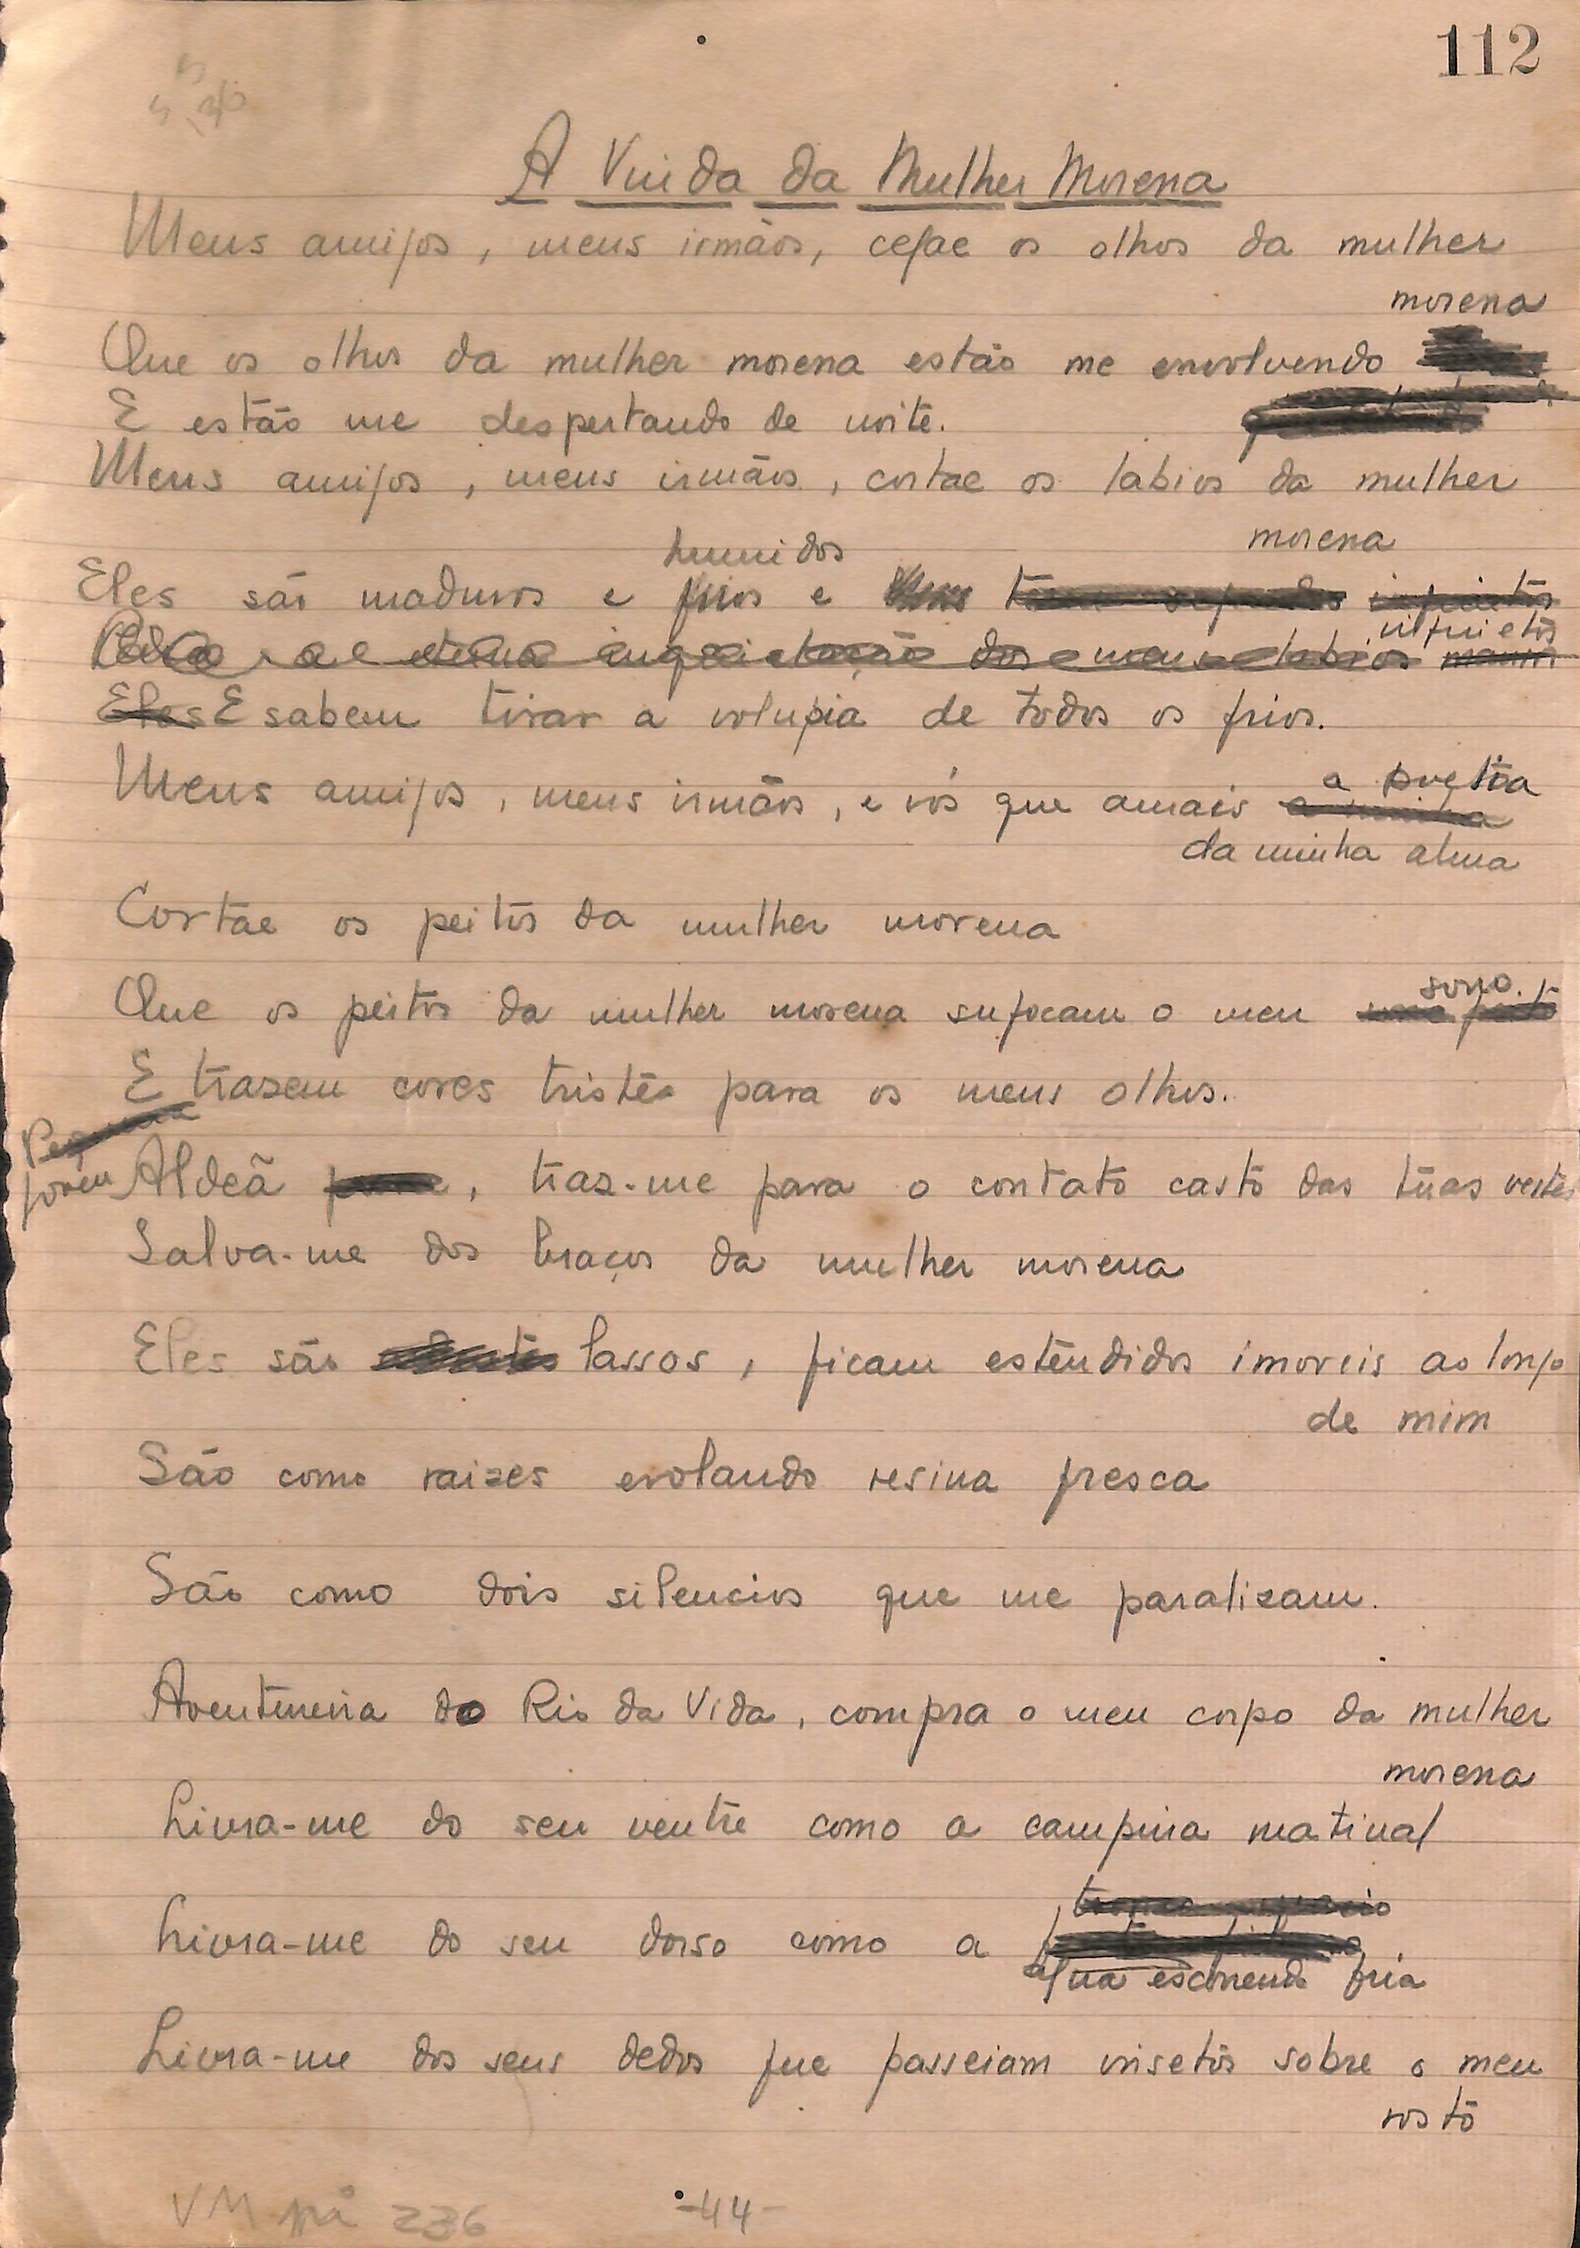 112
A Vinda da Mulher Morena
Meus amigos, meus irmãos, cegae os olhos da mulher
morena
Que os olhos da mulher morena estão me envolvendo
E estão me despertando de noite.
Meus amigos, meus irmãos, cortae os labios da mulher
morena
humidos
Eles são maduros e frios e inquietos
inquietos
Eles E sabem tirar a volupia de todos os frios.
Meus amigos, meus irmãos, e vós que amais a poesia
a minha
da minha alma
Cortae os peitos da mulher morena
sono.
Que os peitos da mulher morena sufocam o meu
E trazem cores tristes para os meus olhos.
Jovem Aldeã, traz-me para o contato casto das tuas vestes
Salva-me dos braços da mulher morena
Eles são lassos, ficam estendidos imoveis ao longo
de mim
São como raizes evolando resina fresca
São como dois silencios que me paralizam.
Aventureira do Rio da Vida, compra o meu corpo da mulher
morena
Livra-me do seu ventre como a campina matinal
Livra-me do seu dorso como a
agua escorrendo fria
Livra-me dos seus dedos que passeiam insetos sobre o meu
rosto
VM pp 236
-44-